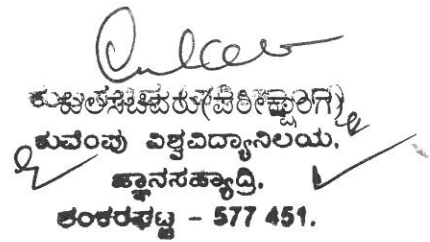 ಕುಲಸಚಿವರು(ಪರೀಕ್ಷಾಂಗ)
ಕುವೆಂಪು ವಿಶ್ವವಿದ್ಯಾನಿಲಯ,
ಜ್ಞಾನಸಹ್ಯಾದ್ರಿ,
ಶಂಕರಘಟ್ಟ - 577 451.